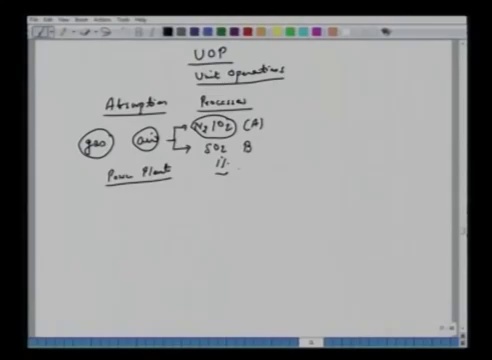 File Edit View Insert Actions Tools Help
UOP
Unit Operations
Absorption Processes
gas air N2/O2 (A)
SO2 B
Power Plant 1%